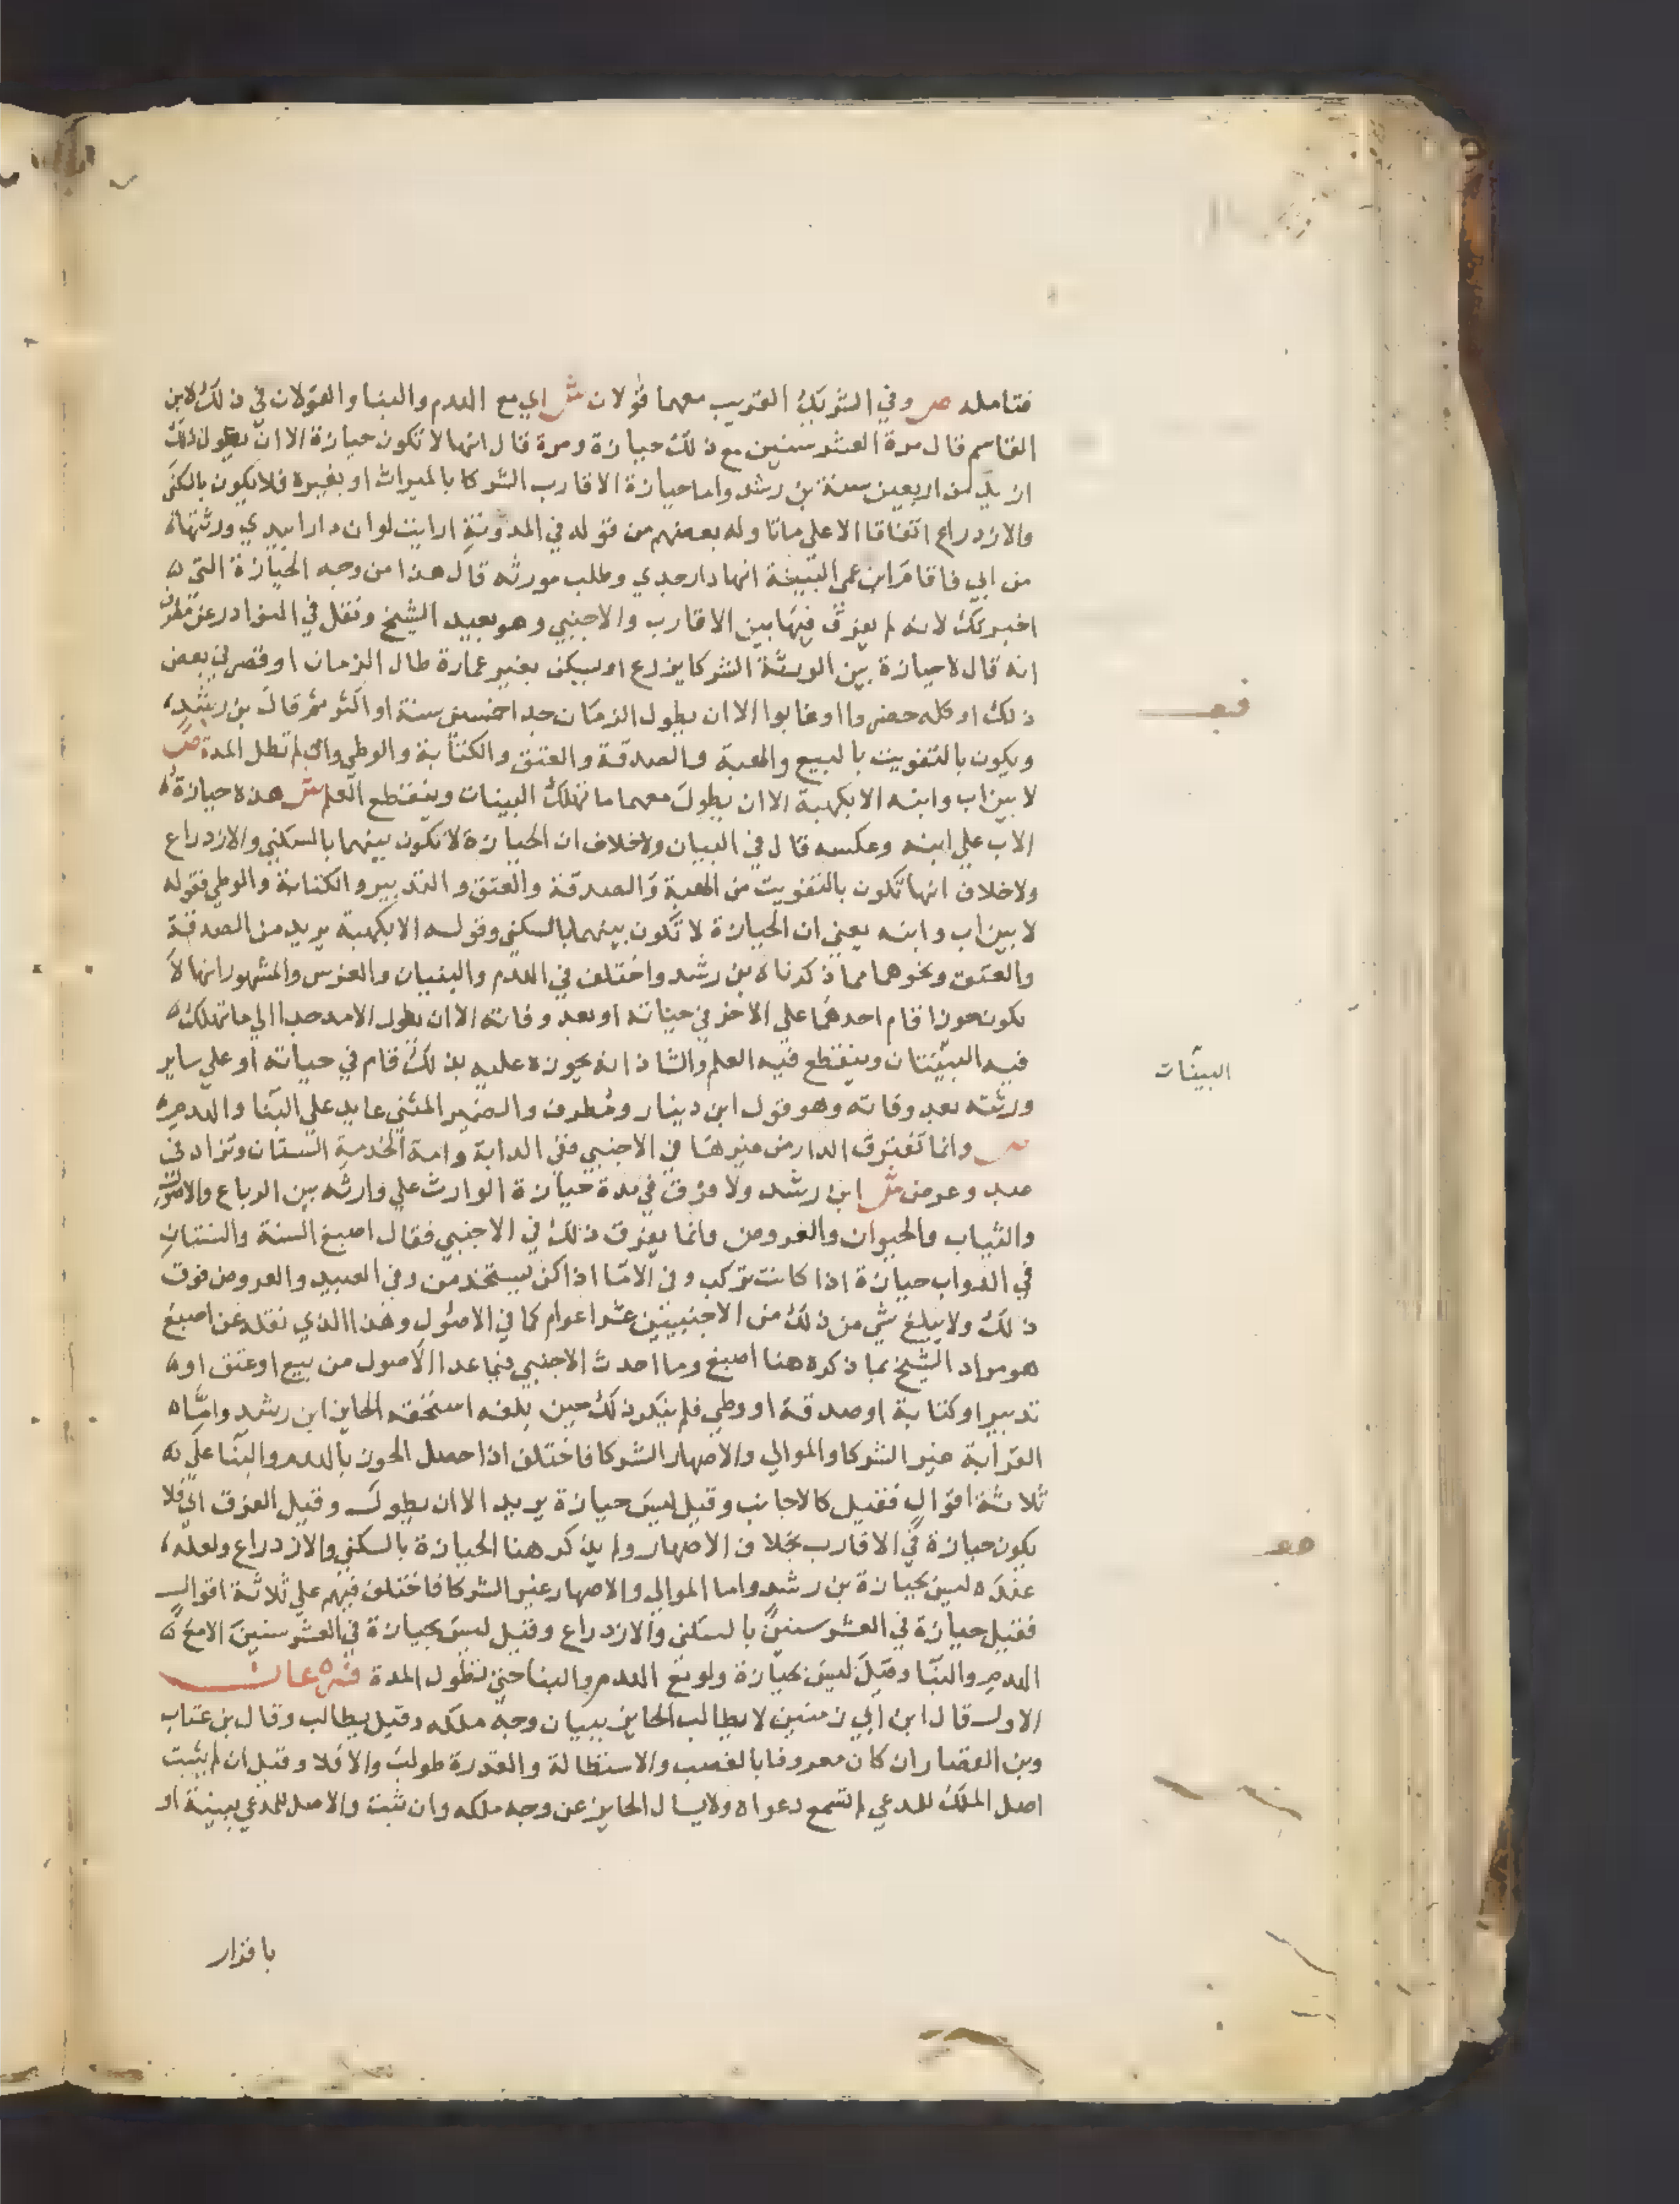 فتامله ص وفي الشريك القريب معهما قولان ش اي مع الهدم والبنا والقولان في ذلك لابن
القاسم قال مرة العشر سنين مع ذلك حيازة ومرة قال انها لا تكون حيازة الا ان يطول ذلك
ازيد من اربعين سنة بن رشد واما حيازة الاقارب الشركا بالميراث او بغيره فلا يكون بالسكنى
والازدراع اتفاقا الا على ما تاوله بعضهم من قوله في المدونة ارايت لو ان دارا بيدي ورثتها
من ابي فاقام ابن عمى البينة انها دار جدي وطلب مورثه قال هذا من وجه الحيازة التي
اخبرتك لانه لم يفرق فيها بين الاقارب والاجنبي وهو بعيد الشيخ ونقل في النوادر عن مطرف
انه قال لا حيازة بين الورثة الشركا يزرع او يسكن بغير عمارة طال الزمان او قصر في بعض
ذلك او كله حضروا او غابوا الا ان يطول الزمان جدا خمسين سنة او اكثر ثم قال بن رشد
ويكون بالتفويت بالبيع والهبة والصدقة والعتق والكتابة والوطي وان لم تطل المدة ص
لا بين اب وابنه الا بكهبة الا ان يطول معهما ما تهلك البينات وينقطع العلم ش هذه حيازة
الاب علي ابنه وعكسه قال في البيان ولا خلاف ان الحيازة لا تكون بينهما بالسكني والازدراع
ولا خلاف انها تكون بالتفويت من الهبة والصدقة والعتق والتدبير والكتابة والوطي فقوله
لا بين اب وابنه يعني ان الحيازة لا تكون بينهما بالسكني وقوله الا بكهبة يريد من الصدقة
والعتق ونحوهما مما ذكرناه بن رشد واختلف في الهدم والبنيان والغرس والمشهور انها لا
يكون حوزا قام احدهما علي الاخر في حياته او بعد وفاته الا ان يطول الامد جدا الي ما تهلك
فيه البينتان وينقطع فيه العلم والشاذ انه يحوزه عليه بذلك قام في حياته او علي ساير
ورثته بعد وفاته وهو قول ابن دينار ومطرف والضمير المثني عايد علي البنا والهدم
ص وانما تفترق الدار من غيرها في الاجنبي ففي الدابة وامة الخدمة السنتان وتزاد في
عبد وعرض ش ابن رشد ولا فرق في مدة حيازة الوارث علي وارثه بين الرباع والاصول
والثياب والحيوان والعروض وانما يفرق ذلك في الاجنبي فقال اصبغ السنة والسنتان
في الدواب حيازة اذا كانت تركب وفي الاما اذا كن يستخدمن وفي العبيد والعروض فوق
ذلك ولا يبلغ شي من ذلك من الاجنبيين عشرا عوام كما في الاصول وهذا الذي نقله عن اصبغ
هو مراد الشيخ بما ذكره هنا اصبغ وما احدث الاجنبي فيما عدا الاصول من بيع او عتق او
تدبير او كتابة او صدقة او وطي فلم ينكر ذلك حين بلغه استحقه الحايز ابن رشد واما
القرابة غير الشركا والموالي والاصهار الشركا فاختلف اذا حصل الحوز بالهدم والبنا علي
ثلاثة اقوال فقيل كالاجانب وقيل ليس حيازة يريد الا ان يطول وقيل الفرق اي فلا
يكون حيازة في الاقارب بخلاف الاصهار ولم يذكر هنا الحيازة بالسكني والازدراع ولعله
عنده ليس بحيازة بن رشد واما الموالي والاصهار غير الشركا فاختلف فيهم علي ثلاثة اقوال
فقيل حيازة في العشر سنين بالسكنى والازدراع وقيل ليس بحيازة في العشر سنين الا مع
الهدم والبنا وقيل ليس بحيازة ولو مع الهدم والبنا حتي تطول المدة فرعان
الاول قال ابن ابي زمنين لا يطالب الحايز ببيان وجه ملكه وقيل يطالب وقال بن عتاب
وبن القصار ان كان معروفا بالغصب والاستطالة والقدرة طولب والا فلا وقيل ان لم يثبت
اصل الملك للمدعي لم تسمع دعواه ولا يسال الحايز عن وجه ملكه وان ثبت والاصل للمدعي ببينة او
باقرار
البينات